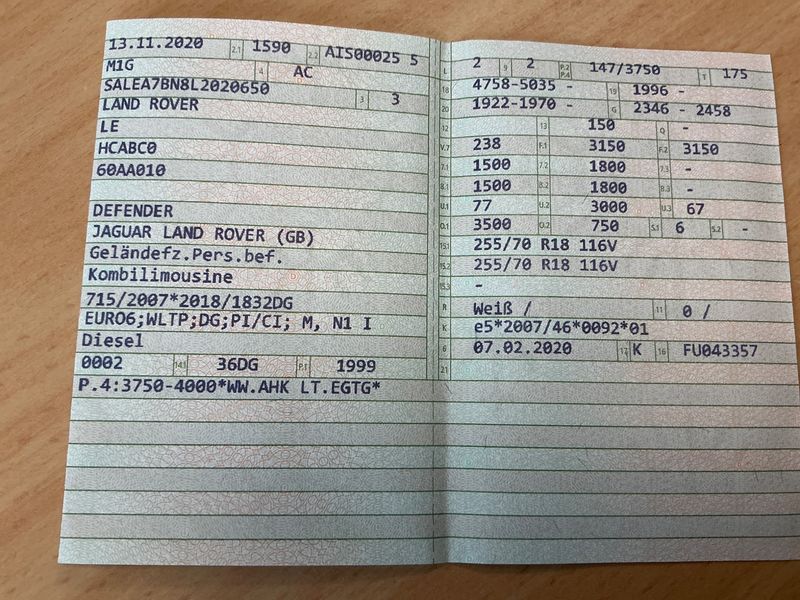 13.11.2020 2.1 1590 2.2 AIS00025 5
M1G 4 AC
SALEA7BN8L2020650 3 3
LAND ROVER
LE
HCABC0
60AA010
DEFENDER
JAGUAR LAND ROVER (GB)
Geländefz.Pers.bef.
Kombilimousine
715/2007*2018/1832DG
EURO6;WLTP;DG;PI/CI; M, N1 I
Diesel
0002 14.1 36DG P.1 1999
P.4:3750-4000*WW.AHK LT.EGTG*
L 2 9 2 P.2 P.4 147/3750 T 175
18 4758-5035 - 19 1996 -
20 1922-1970 - G 2346 - 2458
12 13 150 Q -
V.7 238 F.1 3150 F.2 3150
7.1 1500 7.2 1800 7.3 -
8.1 1500 8.2 1800 8.3 -
U.1 77 U.2 3000 U.3 67
O.1 3500 O.2 750 S.1 6 S.2 -
15.1 255/70 R18 116V
15.2 255/70 R18 116V
15.3 -
R Weiß / 11 0 /
K e5*2007/46*0092*01
6 07.02.2020 17 K 16 FU043357
21